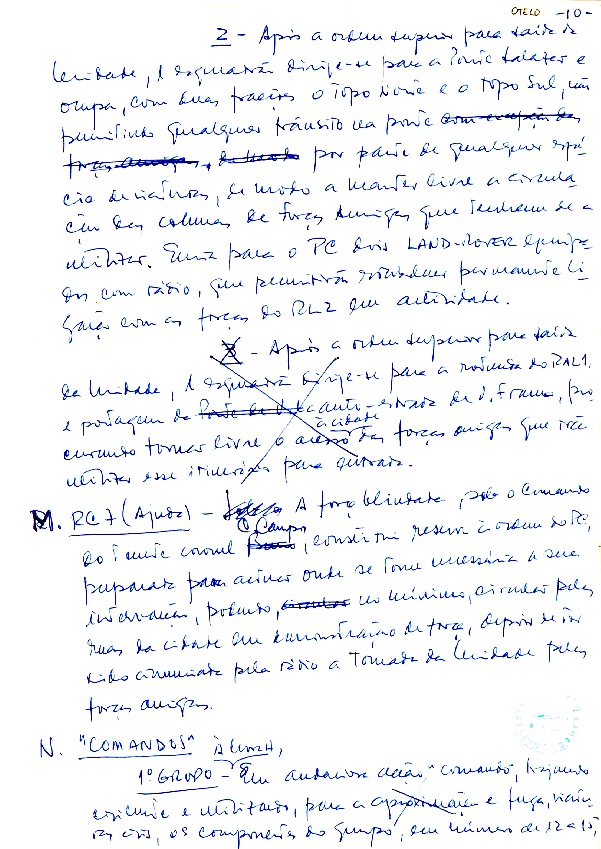 OTELO -10-
2 - Após a ordem superior para saída da
Unidade, 1 esquadrão dirige-se para a Ponte Salazar e
ocupa, com duas fracções o Topo Norte e o Topo Sul, não
permitindo qualquer trânsito na ponte com excepção das
forças amigas, de modo por parte de qualquer espé-
cie de viaturas, de modo a manter livre a circula-
ção das colunas de forças amigas que tenham de a
utilizar. Envia para o PC dois LAND-ROVER equipa-
dos com rádio, que permitirão estabelecer permanente li-
gação com as forças do RL2 em actividade.
3 - Após a ordem superior para saída
da Unidade, 1 esquadrão dirige-se para a rotunda do RAL1
e portagem da auto-estrada de V. Franca, pro-
curando tornar livre o acesso à cidade das forças amigas que irão
utilizar esse itinerário para entrada.
M. RC7 (Ajuda) - A força blindada, sob o comando
do Tenente coronel C. Campos, constitui reserva à ordem do PC,
preparada para actuar onde se torne necessária a sua
intervenção, podendo, circular no mínimo, circular pelas
ruas da cidade em demonstração de força, depois de ter
sido comunicada pela rádio a Tomada da Unidade pelas
forças amigas.
N. "COMANDOS" À HORA H,
1º GRUPO - Em audaciosa acção "comando", trajando
civilmente e utilizando, para a aproximação e fuga, viatu-
ras civis, os componentes do Grupo, em número de 12 a 15,